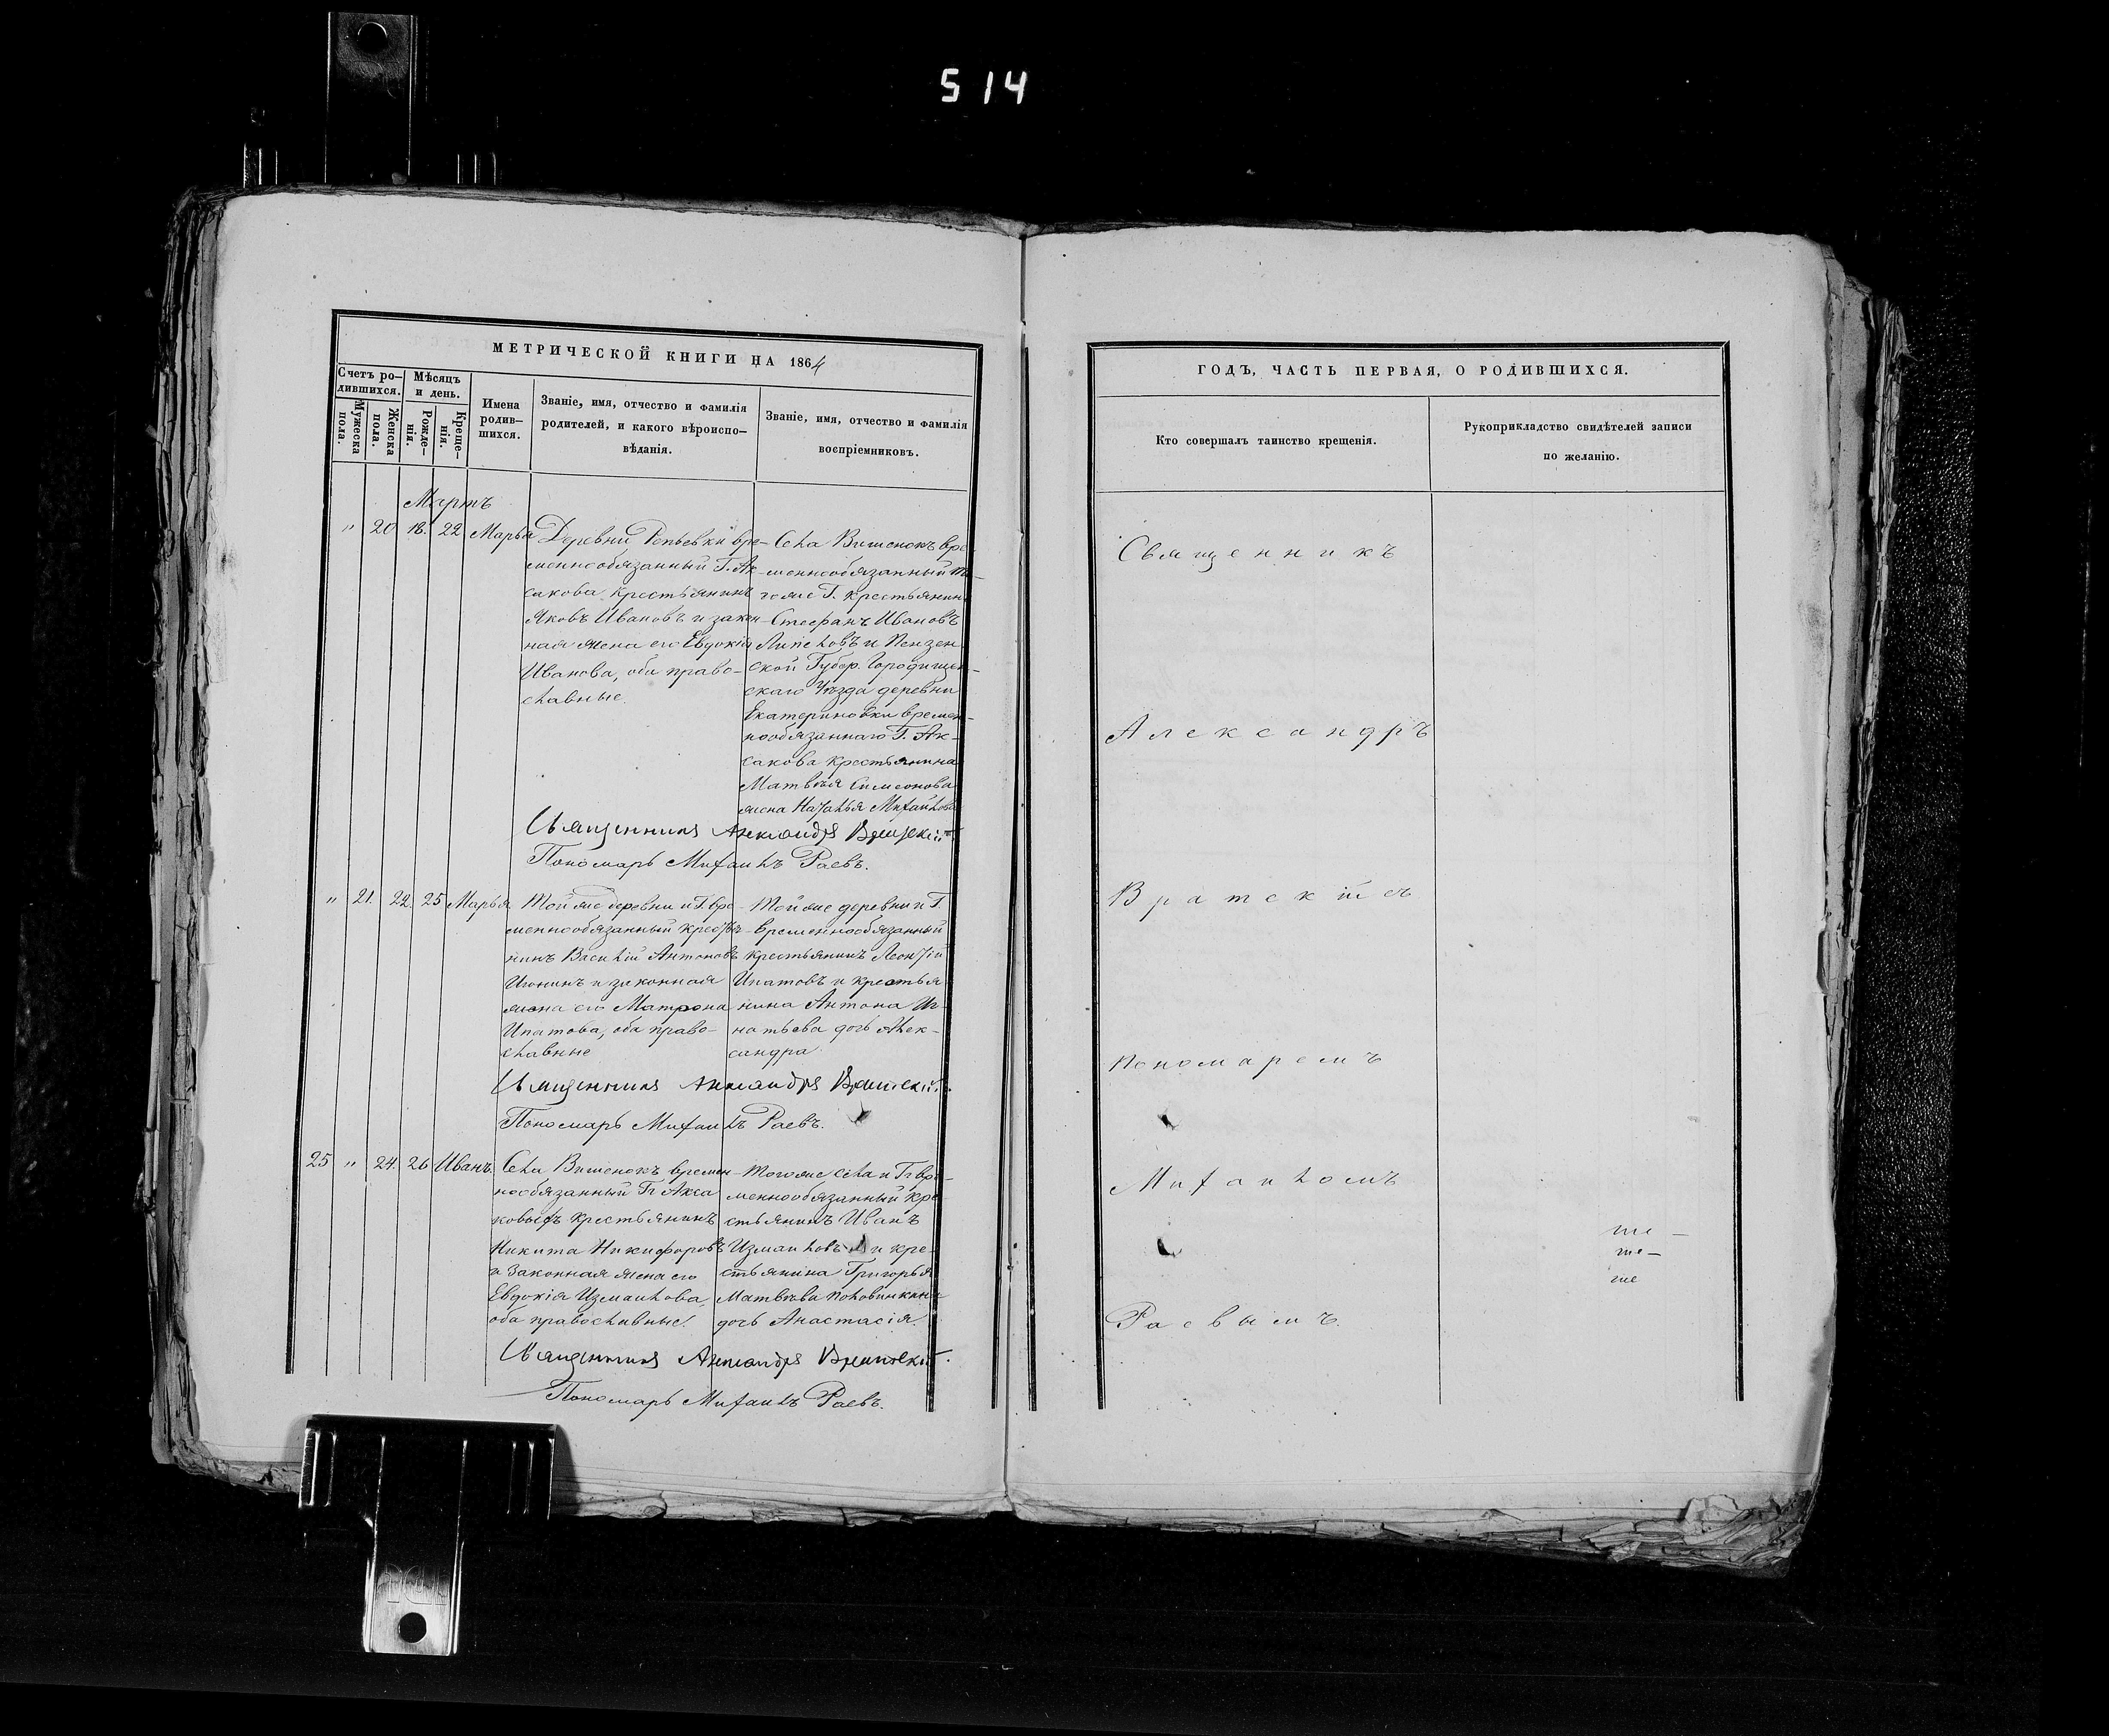 514
МЕТРИЧЕСКОЙ КНИГИ НА 1864
Счетъ ро-
дившихся.
Мѣсяцъ
и день.
Мужеска
пола.
Женска
пола.
Рожде-
нія.
Креще-
нія.
Имена
родив-
шихся.
Званіе, имя, отчество и фамилія
родителей, и какого вѣроиспо-
вѣданія.
Званіе, имя, отчество и фамилія
воспріемниковъ.
Мартъ
" 20 18. 22 Марья
Деревни Репьевки вре-
меннообязанный Г. Ак-
сакова крестьянинъ
Яковъ Ивановъ и закон-
ная жена его Евдокія
Иванова, оба право-
славные.
Села Вишенокъ вре-
меннообязанный то-
гоже Г. крестьянинъ
Стефанъ Ивановъ
Липеловъ и Пензен-
ской Губер. Городищен-
скаго Уѣзда деревни
Екатериновки времен-
нообязаннаго Г. Ак-
сакова крестьянина
Матвѣя Симеонова
жена Наталья Михайлова
Священникъ Александръ Вратскій
Пономарь Михаилъ Раевъ.
" 21. 22. 25 Марья
Той же деревни и Г. вре-
меннообязанный крестья-
нинъ Василій Антоновъ
Игонинъ и законная
жена его Матрона
Ипатова, оба право-
славные
Той же деревни и Г.
временнообязанный
крестьянинъ Леонтій
Ипатовъ и крестья
нина Антона Иг-
натьева дочь Алек-
сандра.
Священникъ Александръ Вратскій.
Пономарь Михаилъ Раевъ.
25 " 24. 26 Иванъ.
Села Вишенокъ времен-
нообязанный Гг Акса
ковыхъ крестьянинъ
Никита Никифоровъ
и Законная жена его
Евдокія Измаилова,
оба православные.
Тогоже села и Гг вре-
меннообязанный кре
стьянинъ Иванъ
Измаиловъ и кре-
стьянина Григорья
Матвѣева Половинкина
дочь Анастасія.
Священникъ Александръ Вратскій.
Пономарь Михаилъ Раевъ.
ГОДЪ, ЧАСТЬ ПЕРВАЯ, О РОДИВШИХСЯ.
Кто совершалъ таинство крещенія.
Рукоприкладство свидѣтелей записи
по желанію.
Священникъ
Александръ
Вратскій съ
пономаремъ
Михаиломъ
Раевымъ.